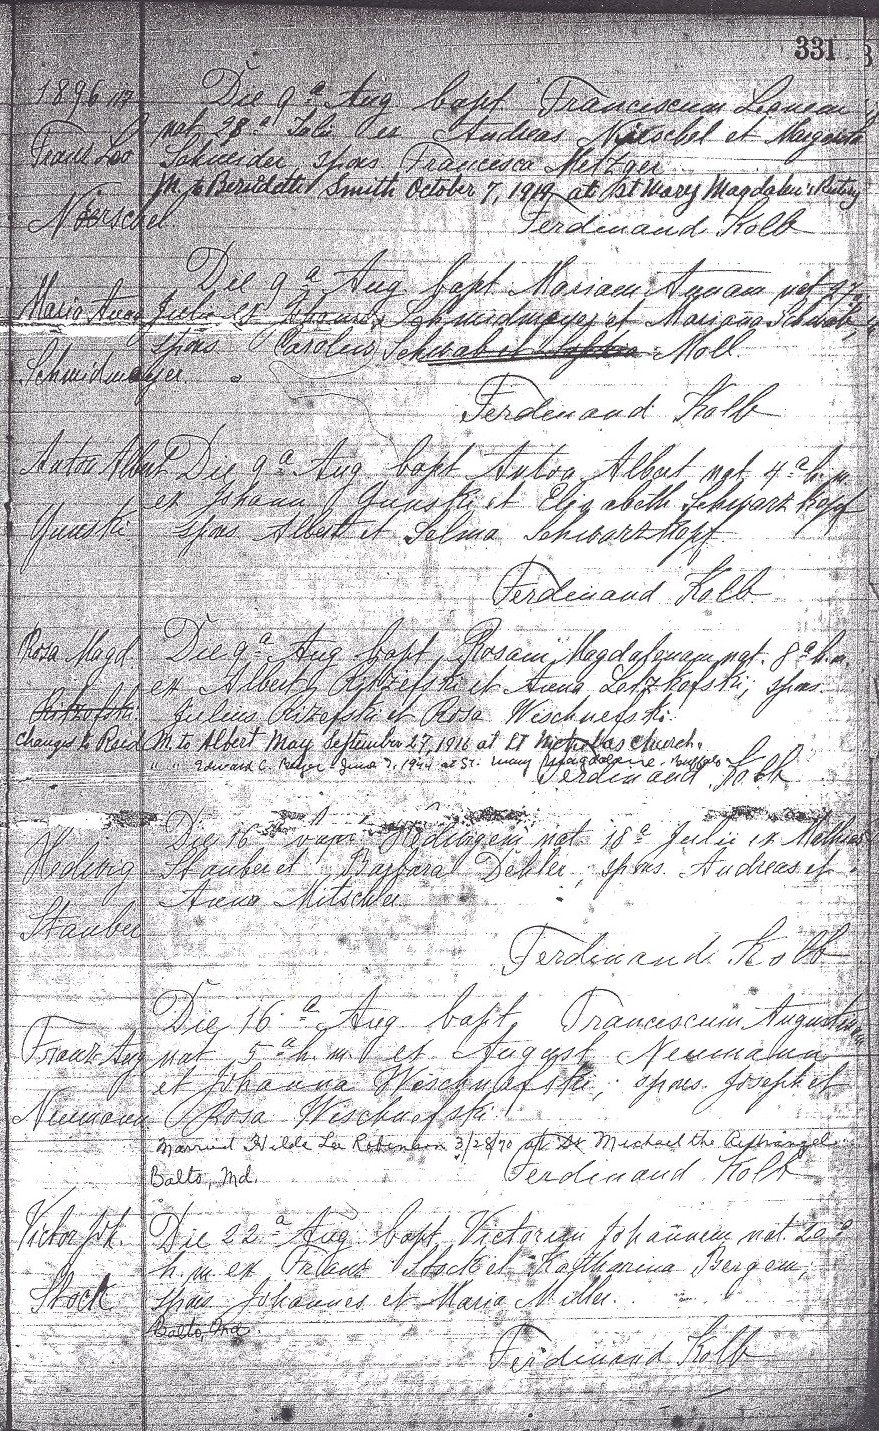 331
1896
Die 9ª Aug bapt Franciscum
nat 28ª Julii ex Andreas Nierschel et Margareta
Franz Leo Schneider, spons Francesca Metzger
M. to Smith October 7, 1919 at St Mary Magdalen's
Nierschel Ferdinand Kolb
Die 9ª Aug bapt Mariam Annam nat 27
Maria Anna Julii ex Thomas Schmidmeyer et Mariana Schwab,
spons Carolus Schwab et Sophia Moll
Schmidmeyer
Ferdinand Kolb
Anton Albert Die 9ª Aug bapt Anton Albert nat 4ª h. m.
ex Johann et Elisabeth Schwarzkopf
spons Albert et Selma Schwarzkopf
Ferdinand Kolb
Rosa Magd. Die 9ª Aug bapt Rosam Magdalenam nat. 8ª h. m.
ex Albert et Anna spons.
Julius et Rosa Wischnefski.
changed to M to Albert May September 27, 1916 at St Nicholas church.
" " Edward C. June 7, 1944 at St. Mary Magdalene - Buffalo
Ferdinand Kolb
Die 16 bapt Hedwigem nat 18ª Julii ex Mathias
Hedwig Stauber et Barbara Debler, spons. Andreas et
Anna Mitschle
Stauber
Ferdinand Kolb
Die 16ª Aug bapt Franciscum Augustinum
Franz Aug nat 5ª h. m. ex August Neumann
et Johanna Wischnefski; spons. Joseph et
Neumann Rosa Wischnefski
Married Hilda Lee Robinson 3/28/70 at St Michael the Archangel
Balto, Md. Ferdinand Kolb
Victor Joh. Die 22ª Aug bapt Victorem Johannem nat. 20ª
h. m. ex Franz Stock et Katharina Bergem,
Stock spons Johannes et Maria Miller.
Balto, Md.
Ferdinand Kolb